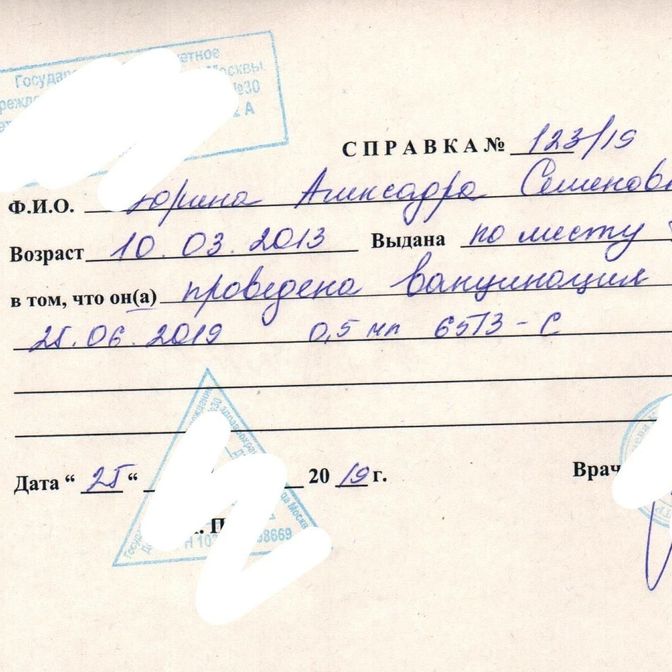 Государ етное
Москвы
№30
2 А
СПРАВКА № 123/19
Ф.И.О. Юрина Александра Семенов
Возраст 10.03.2013 Выдана по месту
в том, что он(а) проведена вакцинация
25.06.2019 0,5 мл 65П3-С
Дата “ 25 “ 20 19 г. Врач